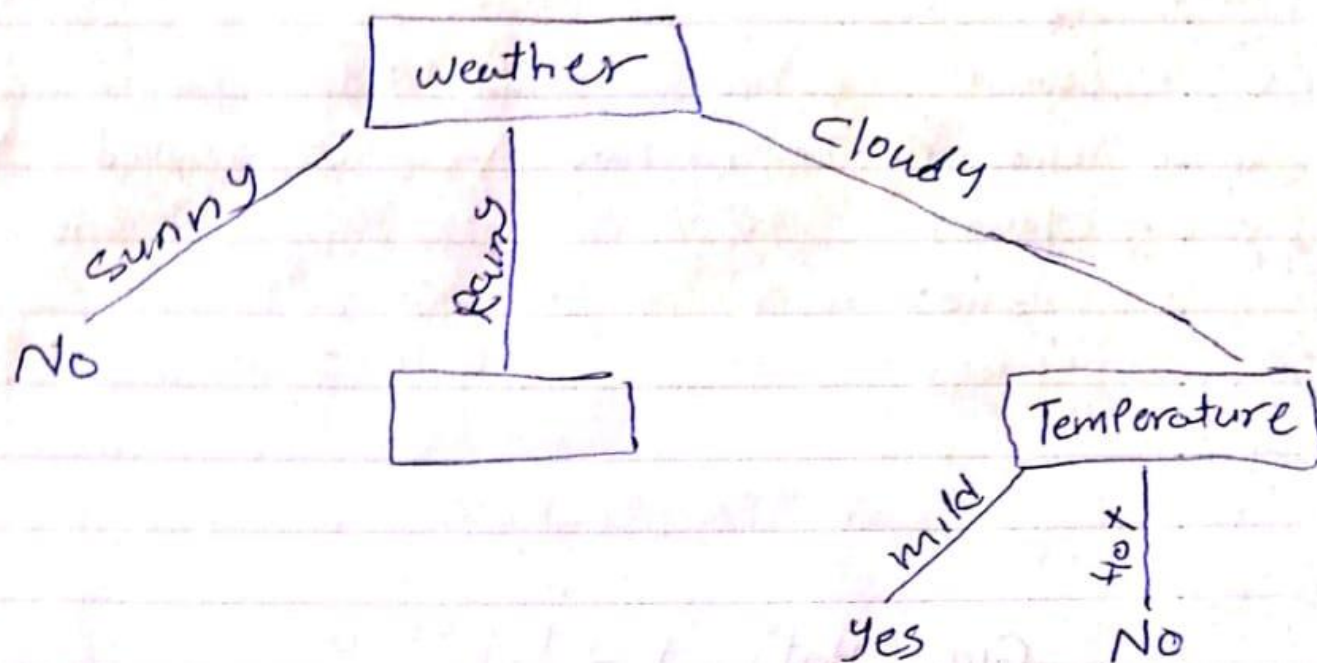 weather
sunny
Rainy
Cloudy
No
Temperature
mild
Hot
Yes
No